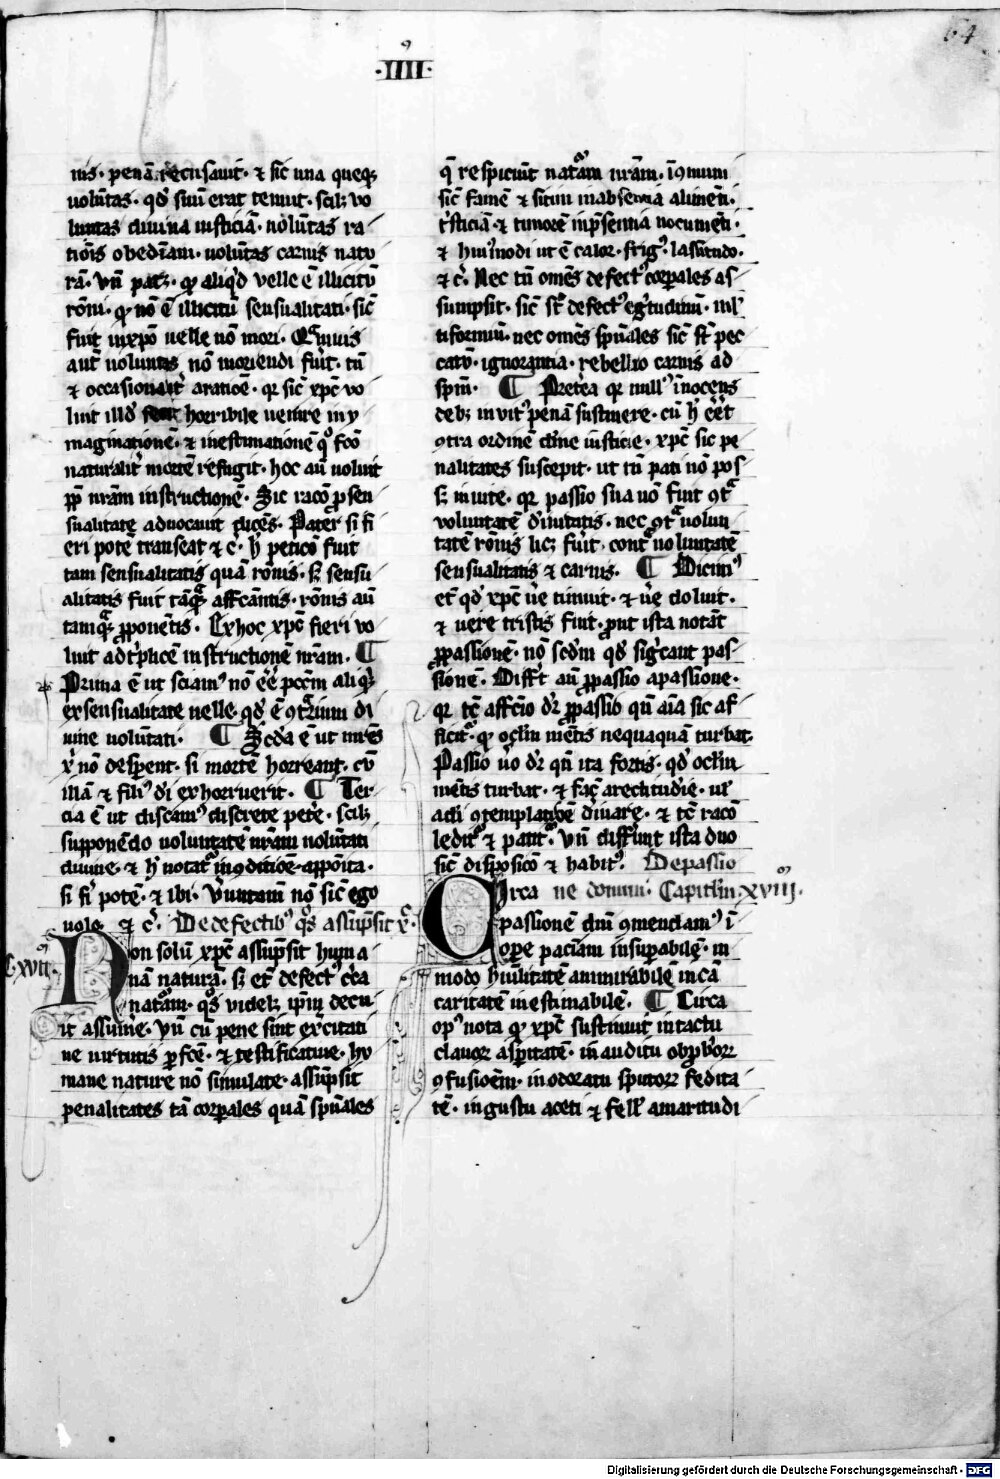 ·IIII·
64
nis· penā recusauit· ⁊ sic una queqꝫ
uolūtas· qd̛ suū erat tenuit· scilꝫ vo
luntas diuina iusticiā· uolūtas ra
tiōis obediam· uolūtas carnis natu
rā· Vn̄ patꝫ· qp aliqͥd velle ē illicitū
rōni· qp nō ē illicitū sensualitati· sic̄
fuit in xpō uelle nō mori· Qᵃmuis
aut̄ uoluntas nō moriendi fuit· tn̄
⁊ occasionalit̛ a ratiōe· qꝛ sic̄ xpc̄ vo
luit illd̛ horribile uenire in y
maginationē· ⁊ in estimationē
naturalit̛ mortē refugit· hoc aū uoluit
ꝓp̄ nr̄am instructionē· Sic racō ꝓ sen
sualitate aduocauit dicēs· Pater si fi
eri potē transeat ⁊ c̛· h̛ peticō fuit
tam sensualitatis quā rōnis· sꝫ sensu
alitatis fuit tāqᵃꝫ affc̄antis· rōnis aū
tamqᵃꝫ ꝓponētis· Ex hoc xpc̄ fieri vo
luit ad tͥplicē instructionē nr̄am· ¶
Prima ē ut sciam⁹ nō ēē pcc̄m aliqͥd
ex sensualitate uelle· qd̛ ē ꝯtͣrium di
uine uolūtati· ¶ Sc̄da ē ut mr̄es
xͥ nō desꝑent· si mortē horreant· cū
illā ⁊ fili⁹ dī exhorruerit· ¶ Ter
cia ē ut discam⁹ discrete petē· scilꝫ
supponēdo uoluntatē nr̄am uolūtati
diuine· ⁊ h̛ notatᷣ in ꝯditiōe appōita·
si fi̛ potē· ⁊ ibi· Ver̄untam̄ nō sic̄ ego
uolo ⁊ c̛· De defectib⁹ qᵒs assūpsit xᶜ·
C. xvii.
Non solū xpc̄ assūpsit huma
nā naturā· sꝫ et̄ defect⁹ cͥca
natᵃm· qᵒs videlꝫ ip̄m decu
it assum̛e· Vn̄ cū pene sint ex̛citati
ue uirtutis ꝑfc̄e· ⁊ testificatiue· hu
mane nature nō simulate· assūpsit
penalitates tā corꝑales quā sp̄uales
q̄ respiciūt natᵃm nr̄am· ī ꝯmuni
sic̄ famē ⁊ sitim in absentia alimēti·
tͥsticiā· ⁊ timorē in p̄sentia nocumēti·
⁊ hui⁹modi ut ē calor· frig⁹· lassitudo·
⁊ c̛· Nec tn̄ omēs defect⁹ corꝑales as
sumpsit· sic̄ st̄ defect⁹ egͥtudinū· ml̄
tiformiū· nec omēs sp̄uales sic̄ st̄ pec
catū· ignorantia· rebellio carnis ad
spm̄· ¶ Pret̛ea qꝛ null⁹ īnocens
debꝫ inuit⁹ penā sustinere· cū h̛ ēēt
ꝯtra ordinē diīne iusticie· xpc̄ sic pe
nalitates suscepit· ut tn̄ pati nō pos
sꝫ inuite· qꝛ passio sua nō fuit ꝯtᵃ
voluntatē diuitatis· nec ꝯtᵃ uolun
tatē rōnis licꝫ fuit· contᵃ uoluntatē
sensualitatis ⁊ carnis· ¶ Dicim⁹
et̄ qd̛ xpc̄ ue̛ timuit· ⁊ ue̛ doluit·
⁊ uere tristis fuit· ꝓut ista notāt
ꝓpassionē· nō scd̄m qd̛ sigͥcant pas
sionē· Differt aū ꝓpassio a passione·
qꝛ tc̄ affcīo dr̄ ꝓpassio qn̄ aīa sic af
ficitᷣ· qp oclm mētis nequaquā turbat·
Passio ưo dr̄ qn̄ ita fortis· qd̛ oclm
mētis turbat· ⁊ fac̄ a rectitudīe· ul̛
a dī ꝯtemplatiōe diuare· ⁊ tc̄ racō
leditᷣ ⁊ patitᷣ· Vn̄ differunt ista duo
sic̄ disposicō ⁊ habit⁹· De passio
ne domini· Capitl̄m xviij·
Circa
passionē dn̄i ꝯmendam⁹ ī
oꝑe paciam insuꝑabilē· in
modo hūilitatē ammirabilē in cā
caritatē inestimabilē· ¶ Circa
op⁹ nota qp xpc̄ sustinuit in tactu
clauoꝝ asꝑitatē· in auditu obp̄brioꝝ
ꝯfusioēm· in odoratu sputoꝝ fedita
tē· in gustu aceti ⁊ fell̄ amaritudi
Digitalisierung gefördert durch die Deutsche Forschungsgemeinschaft · DFG